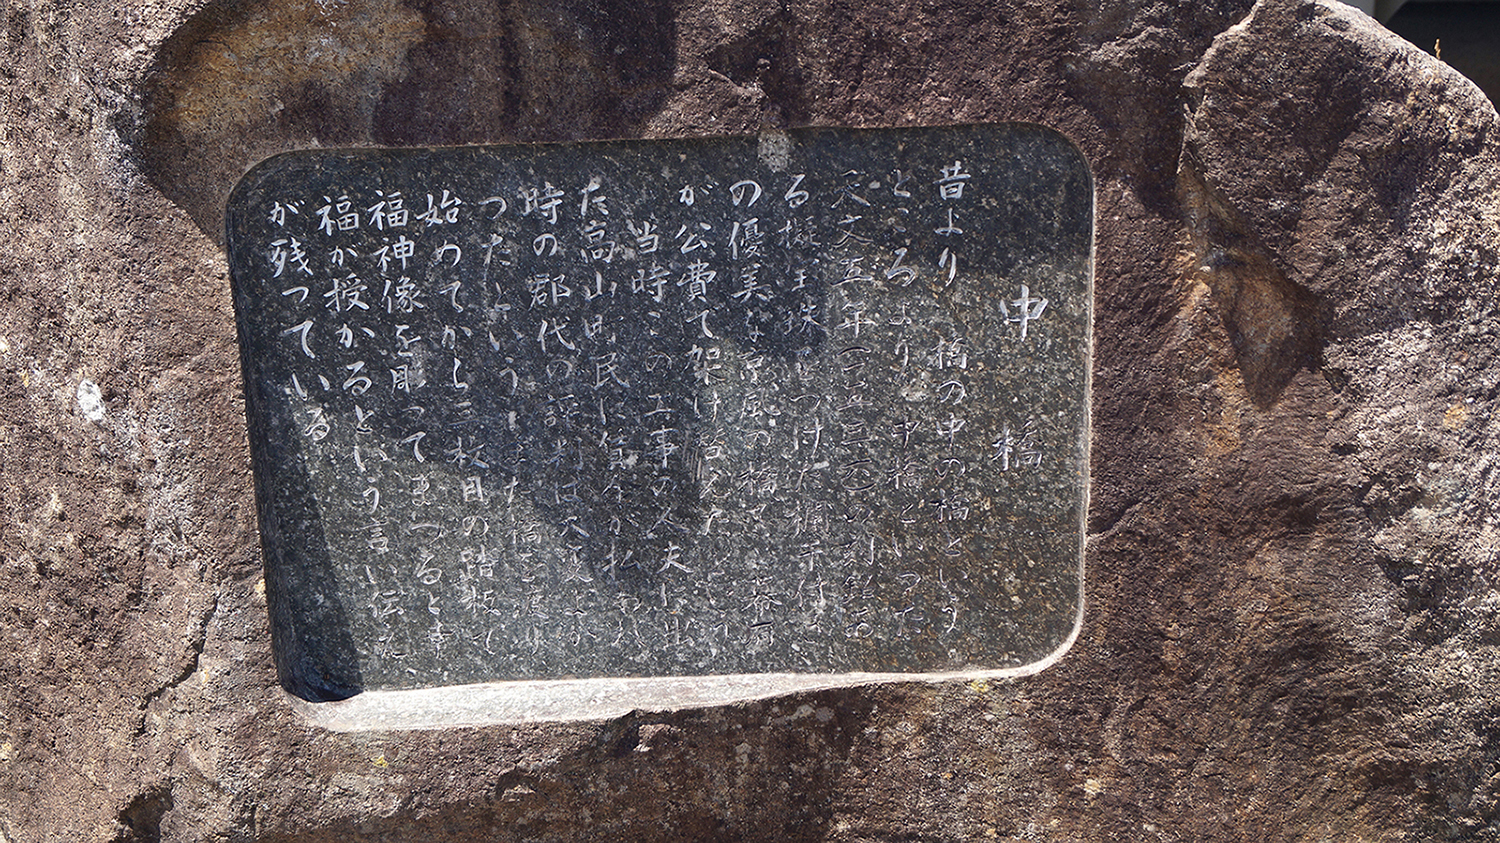 中橋
昔より 橋の中の橋という
ところよりも中橋といった
天文五年(一五三六)の刻銘
る擬宝珠をつけた欄干付き
の優美な京風の橋で
が公費で架け替えたという
当時この工事の人夫に出
た高山町民に賃金が払われ
時の郡代の評判は大変よか
ったという また 橋を渡り
始めてから三枚目の踏板に
福神像を彫ってまつると幸
福が授かるという言い伝え
が残っている